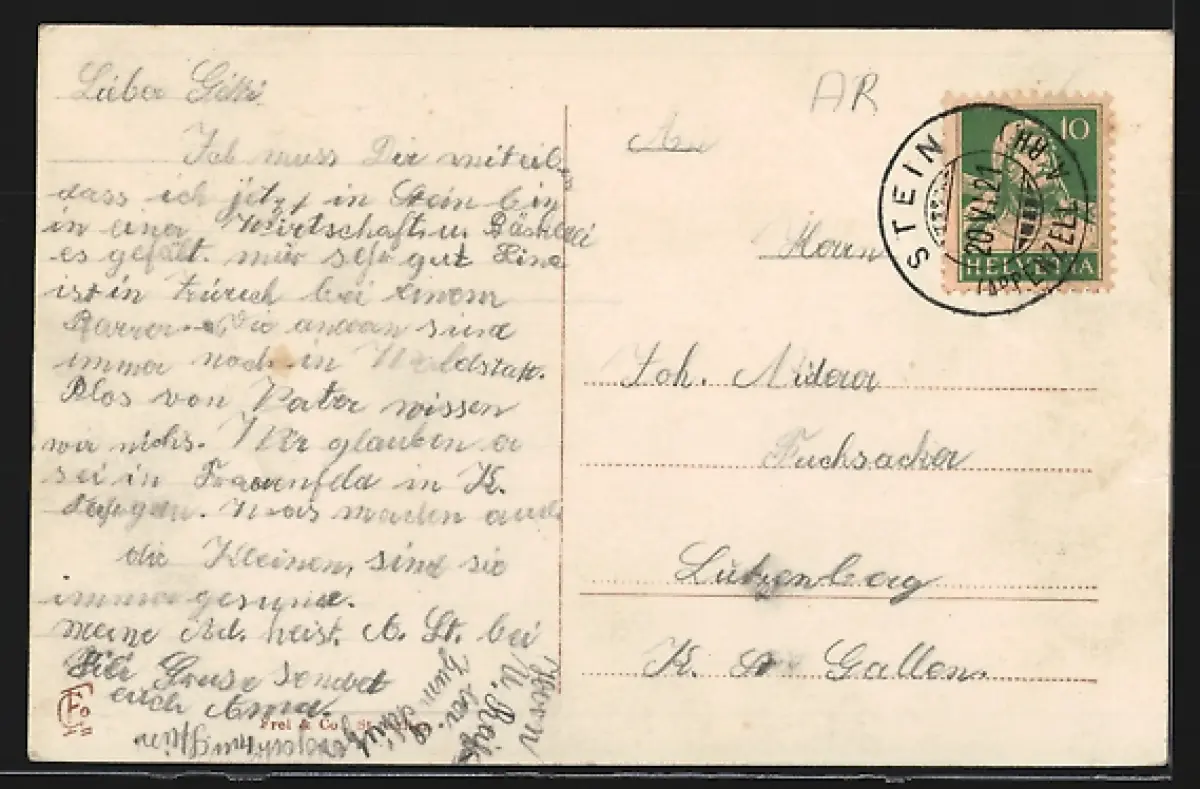 Lieber Götti
Ich muss Dir mitteil
dass ich jetzt in Stein bin
in einer Wirtschaft u. Bäckerei
es gefält. mir sehr gut Lina
ist in Zürich bei einem
Pfarrer. Die andern sind
immer noch in Waldstatt.
Blos von Vater wissen
wir nichs. Wir glauben er
sei in Frauenfeld in K.
Was machen auch
die Kleinen, sind sie
immer gesund.
meine Ad. heist. A. St. bei
Vili Grüse sendet
euch Anna.
Herrn
U.
zum
Stein
Frei & Co
AR
An
Herrn
Joh. Niderer
Fuchsacker
Lutzenberg
K. St. Gallen.
10
HELVETIA
STEIN
20.V.21
(APPENZELL